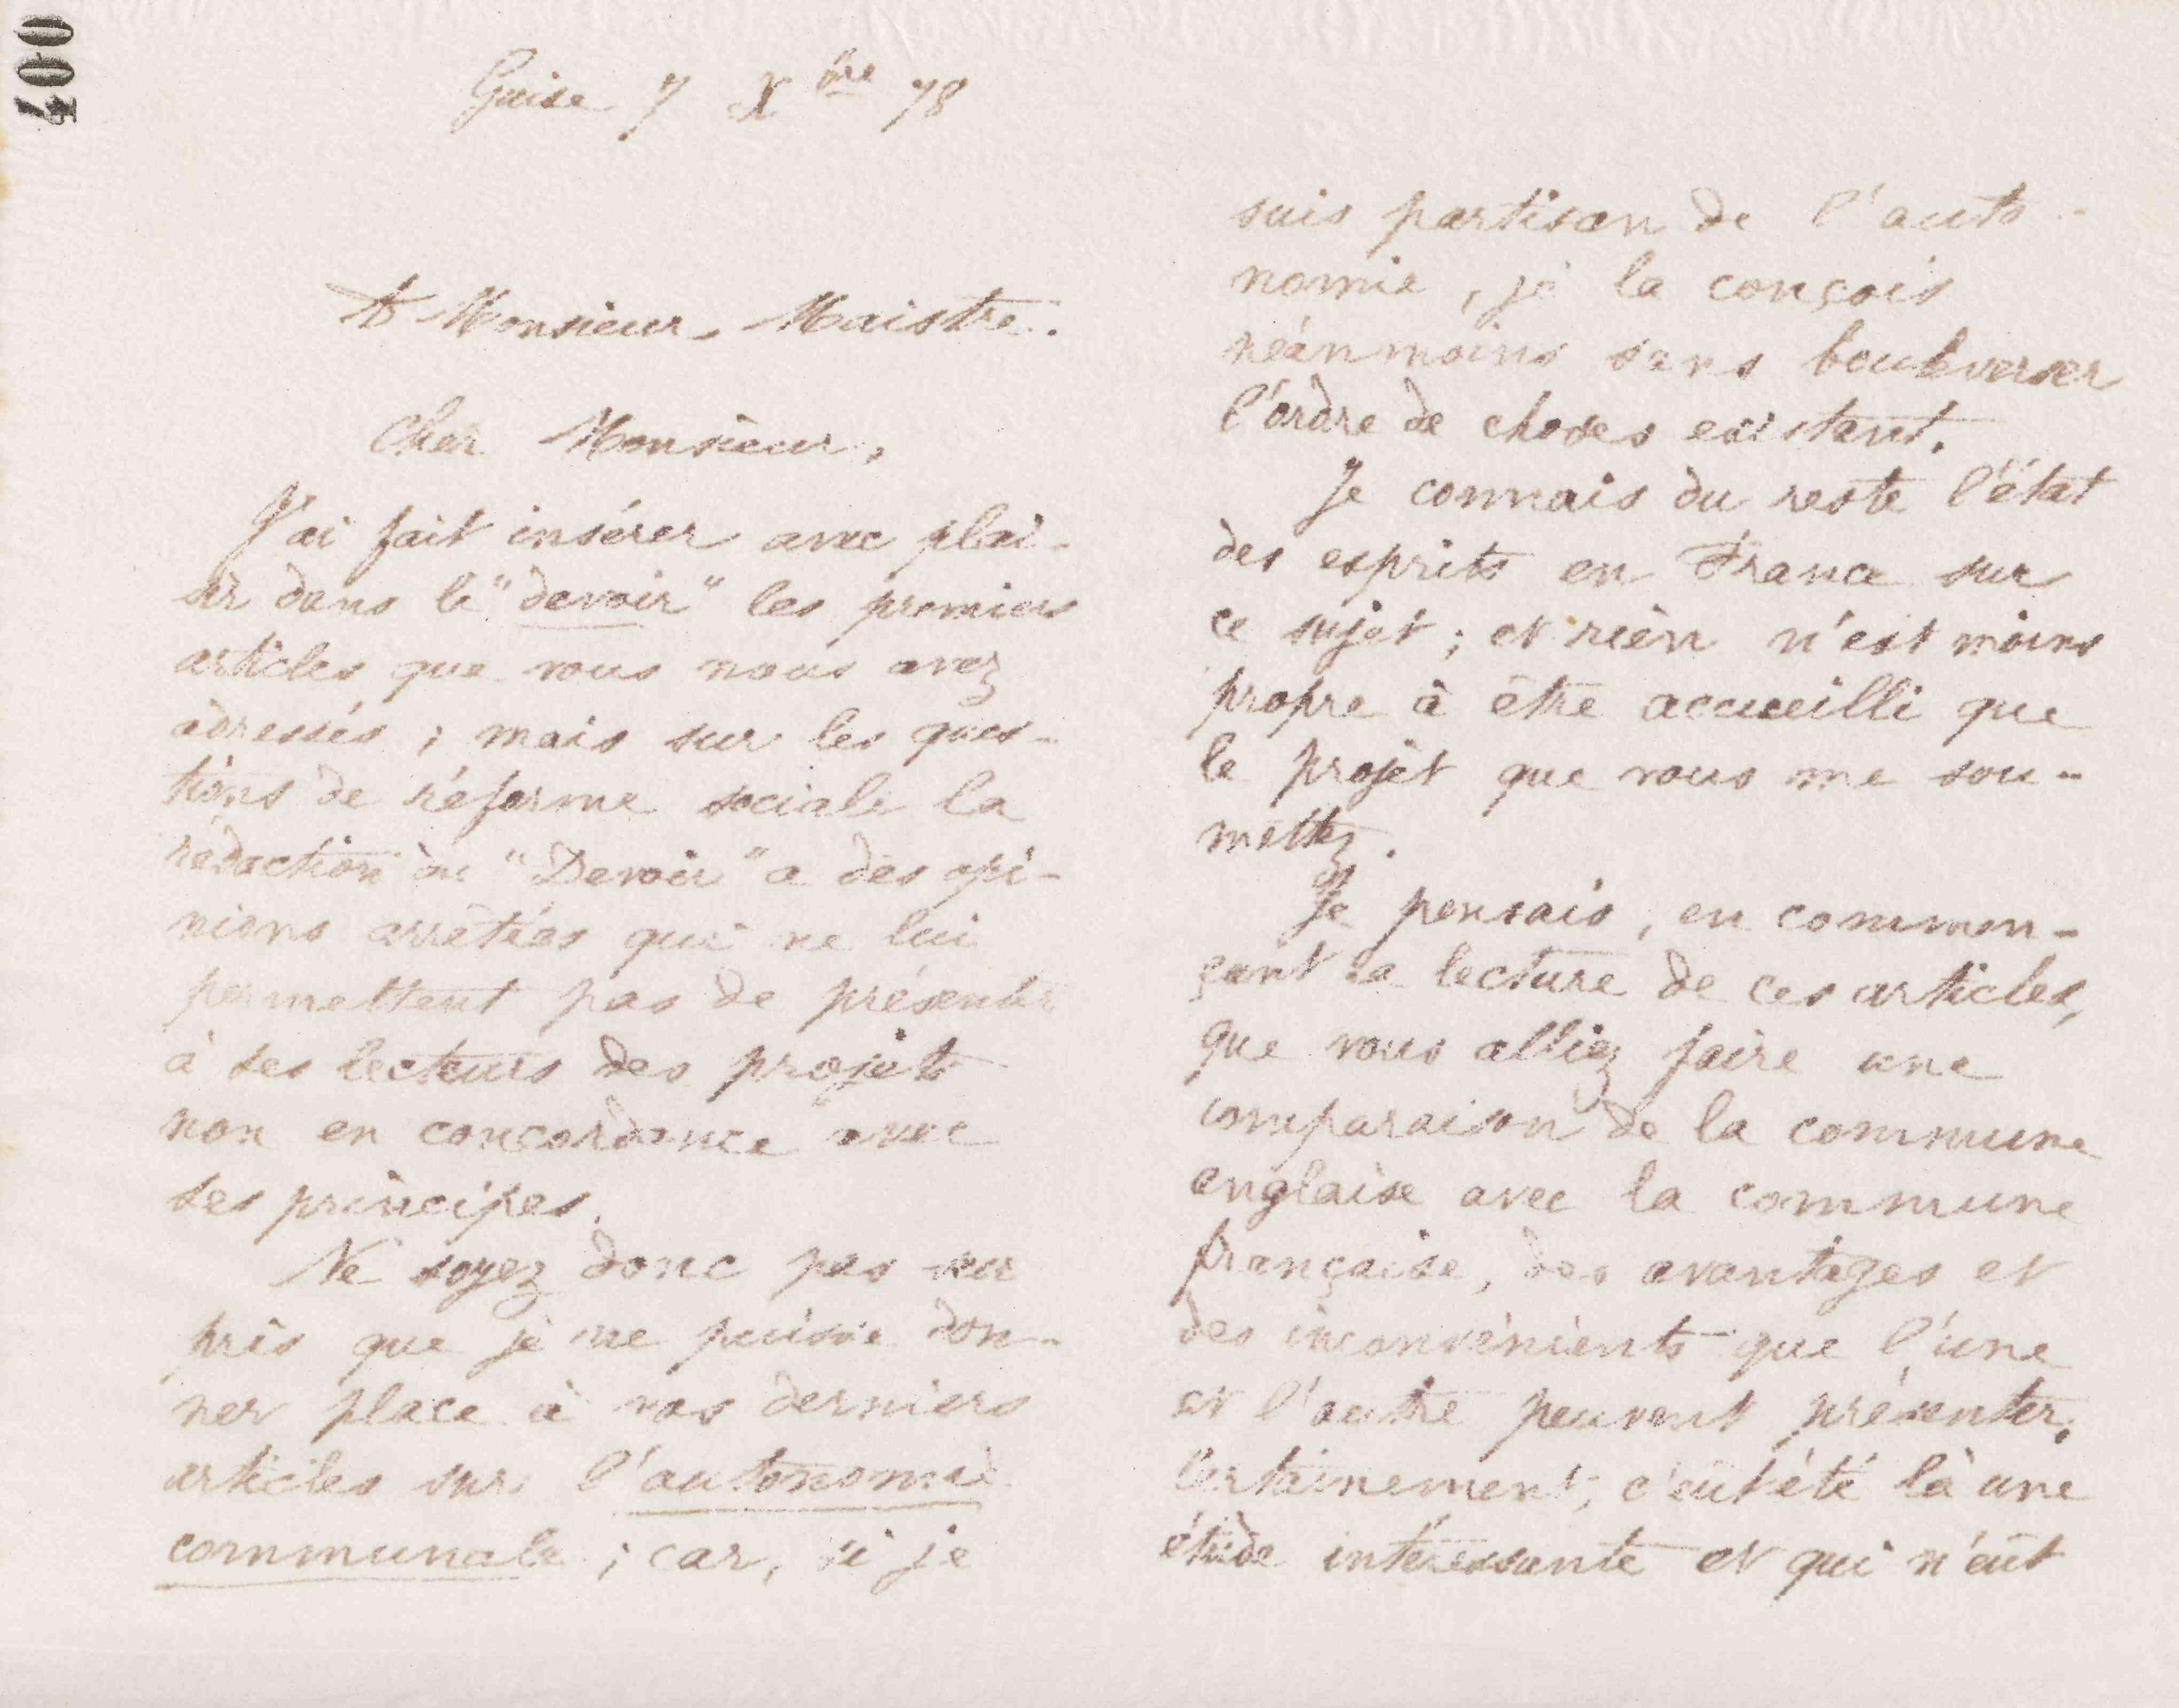 400
Guise 7 Xbre 78
A Monsieur Maistre.
Cher Monsieur,
J'ai fait insérer avec plai-
sir dans le "devoir" les premiers
articles que vous nous avez
adressés ; mais sur les ques-
tions de réforme sociale la
rédaction du "Devoir" a des opi-
nions arrêtées qui ne lui
permettent pas de présenter
à ses lecteurs des projets
non en concordance avec
ses principes.
Ne soyez donc pas sur
pris que je ne puisse don-
ner place à vos derniers
articles sur l'autonomie
communale ; car, si je
suis partisan de l'auto-
nomie, je la conçois
néanmoins sans bouleverser
l'ordre de choses existant.
Je connais du reste l'état
des esprits en France sur
ce sujet ; et rien n'est moins
propre à être accueilli que
le projet que vous me sou-
mettez.
Je pensais, en commen-
çant la lecture de ces articles,
que vous alliez faire une
comparaison de la commune
anglaise avec la commune
française, des avantages et
des inconvénients que l'une
et l'autre peuvent présenter.
Certainement, c'eût été là une
étude intéressante et qui n'eût